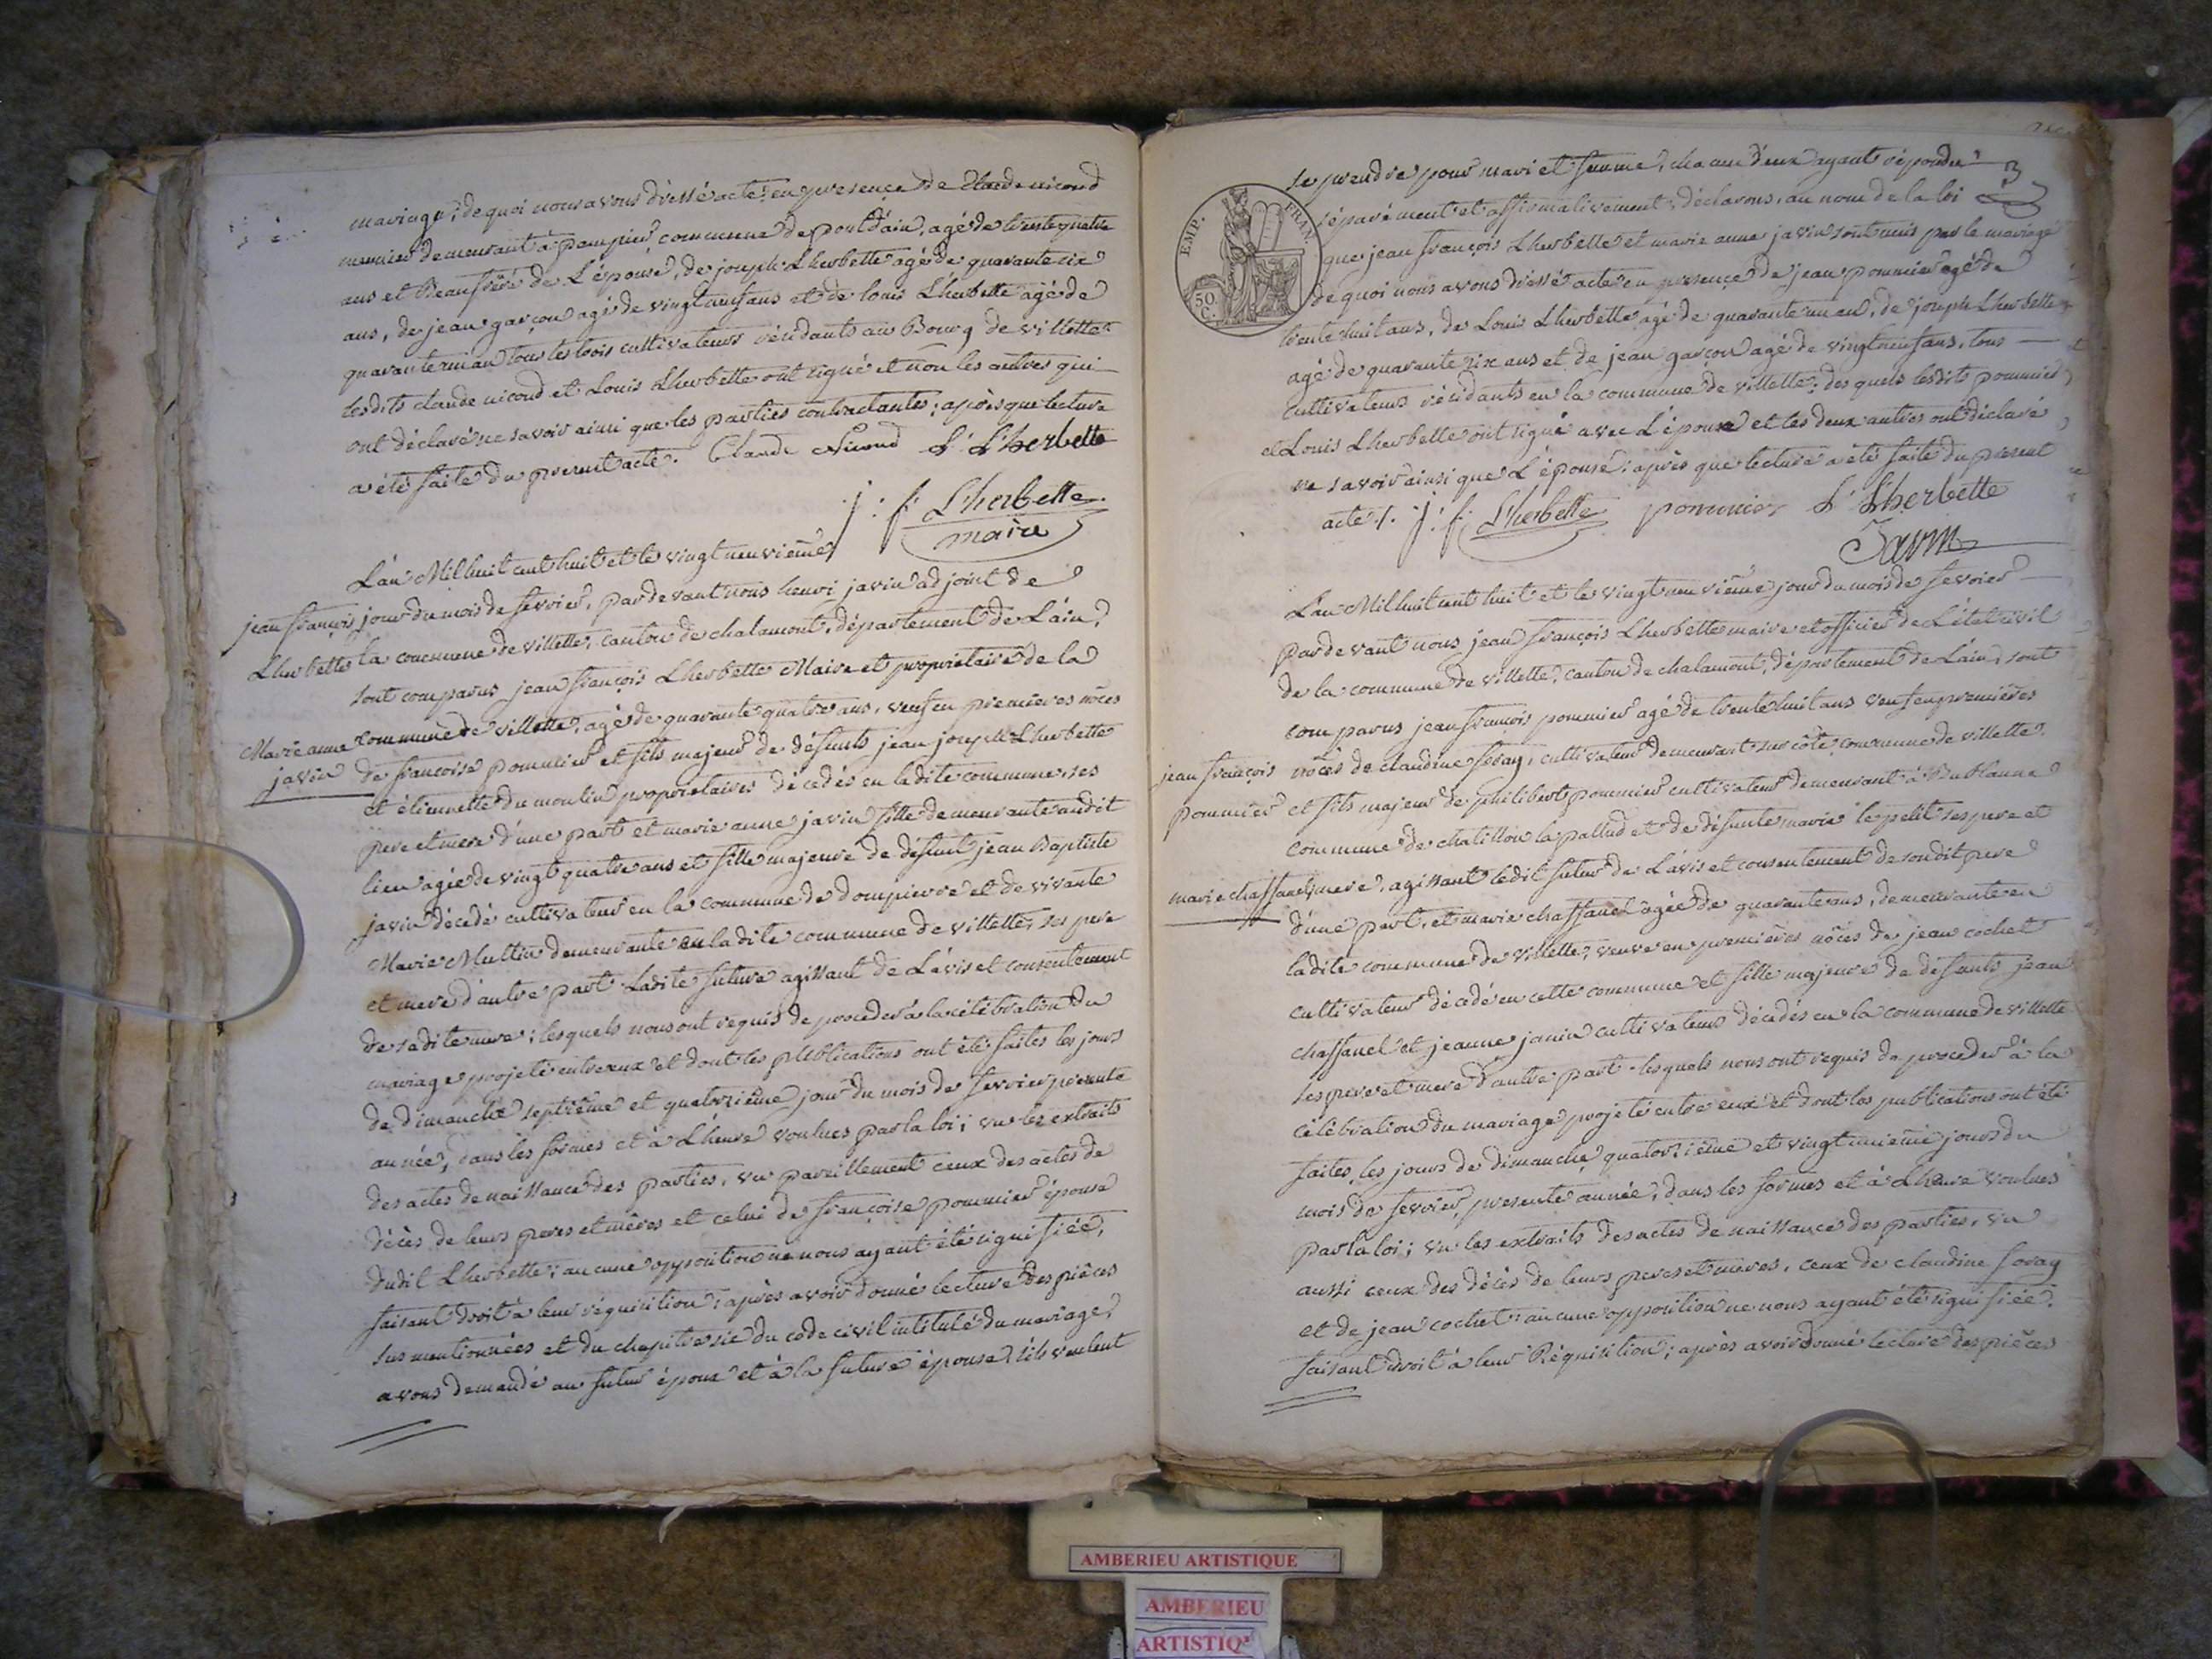 mariage; de quoi nous avons dressé acte en presence de Claude nicoud
meunier demeurant à pampier commune de pont d'ain, agé de trente quatre
ans et Beaufrère de L'épouse, de joseph Lherbette agé de quarante six
ans, de jean garçon agé de vingt neuf ans et de louis Lherbette agé de
quarante un an tous les trois cultivateurs résidants au Bourg de villette
lesdits claude nicoud et Louis Lherbette ont signé et non les autres qui
ont déclaré ne savoir ainsi que les parties contractantes; après que lecture
a été faite du present acte. Claude Nicoud L. L'herbette
j. f. Lherbette
maire
L'an Mil huit cent huit et le vingt neuvième
jour du mois de fevrier, par devant nous henri javin adjoint de
la commune de villette, canton de chalamont, département de L'ain,
jean françois
Lherbette
sont comparus jean françois Lherbette Maire et propriétaire de la
commune de villette, agé de quarante quatre ans, veuf en premières nôces
Marie anne
javin
de françoise pommier et fils majeur de défunts jean joseph Lherbette
et étiennette du moulin propriétaires décédés en ladite commune, ses
pere et mere d'une part et marie anne javin fille demeurante audit
lieu agée de vingt quatre ans et fille majeure de défunt jean Baptiste
javin décédé cultivateur en la commune de dompierre et de vivante
Marie Multin demeurante en ladite commune de villette, ses pere
et mere d'autre part Ladite future agissant de L'avis et consentement
de sadite mere; lesquels nous ont requis de proceder à la célébration du
mariage projeté entre eux et dont les publications ont été faites les jours
de dimanche septième et quatorzième jour du mois de fevrier presente
année, dans les formes et à L'heure voulues par la loi; vu les extraits
des actes de naissance des parties, vu pareillement ceux des actes de
décès de leurs peres et mères et celui de françoise pommier épouse
dudit Lherbette; aucune opposition ne nous ayant été signifiée,
faisant droit à leur réquisition; après avoir donné lecture des pièces
sus mentionnées et du chapitre six du code civil intitulé du mariage,
avons demandé au futur époux et à la future épouse s'ils veulent
3
se prendre pour mari et femme, chacun d'eux ayant répondu
séparément et affirmativement, déclarons, au nom de la loi
que jean françois Lherbette et marie anne javin sont unis par le mariage
de quoi nous avons dressé acte en presence de jean pommier agé de
trente huit ans, de Louis Lherbette agé de quarante un an, de joseph Lherbette
agé de quarante six ans et de jean garçon agé de vingt neuf ans, tous
cultivateurs résidants en la commune de villette; des quels lesdits pommier
et Louis Lherbette ont signé avec L'époux et les deux autres ont déclaré
ne savoir ainsi que L'épouse; après que lecture a été faite du present
acte /. j. f. Lherbette pommier L. L'herbette
Javin
EMP. FRAN.
50 C.
L'an Mil huit cent huit et le vingt neuvième jour du mois de fevrier
par devant nous jean françois Lherbette maire et officier de L'état civil
de la commune de villette, canton de chalamont, département de L'ain, sont
comparus jean françois pommier agé de trente huit ans veuf en premières
jean françois
pommier
nôces de claudine foray, cultivateur demeurant sur côte commune de villette
et fils majeur de philibert pommier cultivateur demeurant à Bublanne
commune de chatillon la pallud et de défunte marie le petit ses pere et
marie chaffanel
mere, agissant ledit futur de L'avis et consentement de sondit pere
d'une part, et marie chaffanel agée de quarante ans, demeurante en
ladite commune de villette, veuve en premières nôces de jean cochet
cultivateur décédé en cette commune et fille majeure de défunts jean
chaffanel et jeanne janin cultivateurs décédés en la commune de villette
ses pere et mere d'autre part - lesquels nous ont requis de proceder à la
célébration du mariage projeté entre eux et dont les publications ont été
faites les jours de dimanche quatorzième et vingt unième jours du
mois de fevrier, presente année, dans les formes et à L'heure voulues
par la loi; vu les extraits des actes de naissance des parties, vu
aussi ceux des décès de leurs peres et mères, ceux de claudine foray
et de jean cochet; aucune opposition ne nous ayant été signifiée.
faisant droit à leur Réquisition; après avoir donné lecture des pièces
AMBERIEU ARTISTIQUE
AMBERIEU
ARTISTIQ